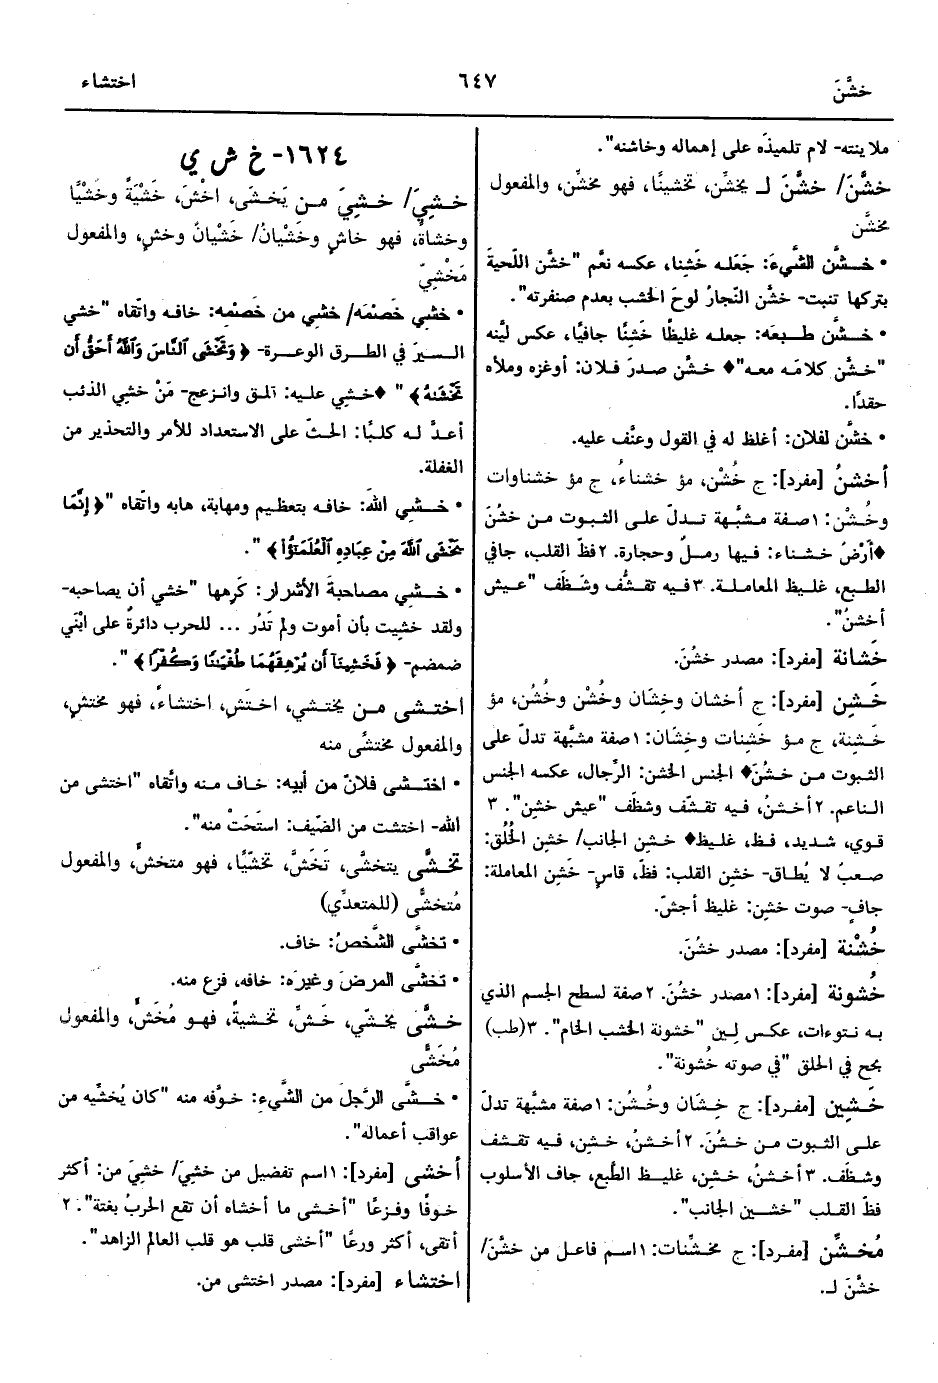 خشَّنَ
٦٤٧
اختشاء
ملاينته- لام تلميذَه على إهماله وخاشنه".
خشَّنَ/ خشَّنَ لـ يخشِّن، تخشينًا، فهو مخشِّن، والمفعول
مخشَّن
• خـشَّن الشَّيءَ: جَعَلـه خَشِنا، عكسه نعَّم "خشَّن اللّحيةَ
بتركها تنبت- خشَّن النّجارُ لوحَ الخشب بعدم صنفرته".
• خـشَّن طـبعَه: جعلـه غليظًا خَشِنًا جافيًا، عكس ليَّنه
"خـشَّن كلامَـه معـه"♦ خـشَّن صـدرَ فـلان: أوغَزه وملأه
حقدًا.
• خشَّن لفلان: أغلظ له في القول وعنَّف عليه.
أخشنُ [مفرد]: ج خُشْن، مؤ خشناءُ، ج مؤ خشناوات
وخُشْن: ١صفة مشبَّهة تـدلّ علـى الثـبوت مـن خشُنَ
♦أرْضٌ خـشناء: فـيها رمـلٌ وحجارة. ٢فظّ القلب، جافي
الطـبع، غلـيظ المعاملـة. ٣فـيه تقـشُّف وشَـظَف "عـيش
أخشنُ".
خَشانة [مفرد]: مصدر خشُنَ.
خَـشِن [مفرد]: ج أخشان وخِشَان وخُشْن وخُشُن، مؤ
خَـشِنة، ج مـؤ خَشِنات وخِشَان: ١صفة مشبَّهة تدلّ على
الثـبوت مـن خـشُنَ♦ الجنس الخشن: الرِّجال، عكسه الجنس
الـناعم. ٢أخـشنُ، فـيه تقـشّف وشظَف "عيش خشِن". ٣
قـوي، شـديد، فـظ، غلـيظ♦ خـشِن الجانب/ خشِن الخُلُق:
صـعبٌ لا يُطـاق- خشِن القلب: فظّ، قاسٍ- خَشِن المعاملة:
جافٍ- صوت خشِن: غليظ أجشّ.
خُشْنة [مفرد]: مصدر خشُنَ.
خُشونة [مفرد]: ١مصدر خشُنَ. ٢صفة لسطح الجسم الذي
بـه نـتوءات، عكـس لـيِن "خشونة الخشب الخام". ٣(طب)
بحح في الحلق "في صوته خُشونة".
خَـشِين [مفـرد]: ج خِـشَان وخُـشُن: ١صفة مشبَّهة تدلّ
علـى الثـبوت مـن خـشُنَ. ٢أخـشنُ، خـشِن، فـيه تقـشف
وشـظَف. ٣أخـشنُ، خـشِن، غلـيظ الطَّبع، جاف الأسلوب
فظّ القـلب "خـشـين الجانب".
مُخـشِّن [مفـرد]: ج مخـشِّنات: ١اسـم فاعـل من خشَّنَ/
خشَّنَ لـ.
١٦٢٤- خ ش ي
خـشِيَ/ خـشِيَ مـن يَخـشَى، اخْشَ، خَشْيَةً وخَشْيًا
وخشاةً، فهو خاشٍ وخَشْيانُ/ خَشْيانٌ وخشٍ، والمفعول
مَخْشِيّ
• خشي خَصْمَه/ خشي من خَصْمِه: خافه واتّقاه "خشي
السيـرَ في الطرق الوعـرة- ﴿ وَتَخْشَى ٱلنَّاسَ وَٱللَّهُ أَحَقُّ أَن
تَخْشَىٰهُ ﴾ " ♦خـشي علـيه: أشـفق وانـزعج- مَنْ خشِي الذئب
أعـدَّ لـه كلـبًا: الحـثّ على الاستعداد للأمر والتحذير من
الغفلة.
• خـشـي اللهَ: خافـه بتعظـيم ومهابة، هابه واتّقاه "﴿ إِنَّمَا
يَخْشَى ٱللَّهَ مِنْ عِبَادِهِ ٱلْعُلَمَٰٓؤُا۟ ﴾ ".
• خـشـي مصاحبةَ الأشرار: كَرِهها "خشي أن يصاحبه-
ولقد خشيت بأن أموت ولم تَدُر ... للحرب دائرةٌ على ابْنَي
ضمضم- ﴿ فَخَشِينَآ أَن يُرْهِقَهُمَا طُغْيَٰنًا وَكُفْرًا ﴾ ".
اختـشى مـن يختـشي، اخـتَشِ، اختـشاءً، فهو مختشٍ،
والمفعول مختشًى منه
• اخـتشى فلانٌ مـن أبيه: خـاف منه واتَّقاه "اختشى من
الله- اختشت من الضّيف: استَحَتْ منه".
تخـشَّى يتخشَّى، تَخَشَّ، تخشّيًا، فهو متخشٍّ، والمفعول
مُتخشًّى (للمتعدِّي)
• تخشَّى الشَّخصُ: خاف.
• تخشَّى المرضَ وغيرَه: خافه، فزع منه.
خـشَّى يخـشّي، خَـشِّ، تخـشيةً، فهـو مُخَشٍّ، والمفعول
مُخَشًّى
• خـشَّى الرَّجلَ من الشَّيءِ: خوَّفه منه "كان يُخشِّيه من
عواقب أعماله".
أخشى [مفرد]: ١اسم تفضيل من خشِيَ/ خشِيَ من: أكثر
خـوفًا وفـزعًا "أخـشى ما أخشاه أن تقع الحربُ بغتة". ٢
أتقى، أكثر ورعًا "أخشى قلب هو قلب العالم الزاهد".
اختشاء [مفرد]: مصدر اختشى من.